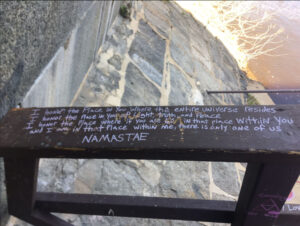 I honor the Place in You where this entire universe resides
I honor the Place in You of Light, Truth, and Peace
I honor the Place where if you are in that place within You
and I am in that place within me, there is only one of us
NAMASTAE